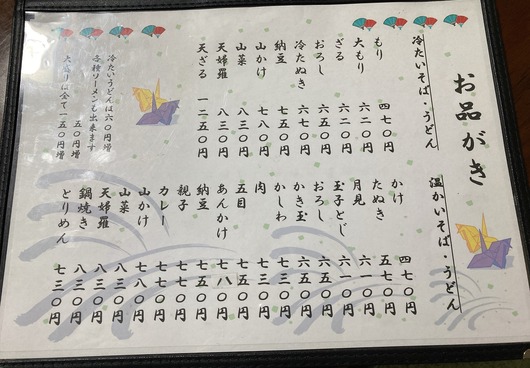 お品がき
冷たいそば・うどん
もり 四七〇円
大もり 六二〇円
ざる 六二〇円
おろし 六五〇円
冷たぬき 六七〇円
納豆 七五〇円
山かけ 七八〇円
山菜 八三〇円
天婦羅 八三〇円
天ざる 一二五〇円
冷たいうどんは六〇円増
各種ソーメンも出来ます
五〇円増
大盛りは全て一五〇円増
温かいそば・うどん
かけ 四七〇円
たぬき 五七〇円
月見 六一〇円
玉子とじ 六一〇円
おろし 六五〇円
かき玉 六五〇円
かしわ 七三〇円
肉 七三〇円
五目 七五〇円
あんかけ 七八〇円
納豆 七五〇円
親子 七七〇円
カレー 七七〇円
山かけ 七八〇円
山菜 八三〇円
天婦羅 八三〇円
鍋焼き 八三〇円
とりめん 七三〇円